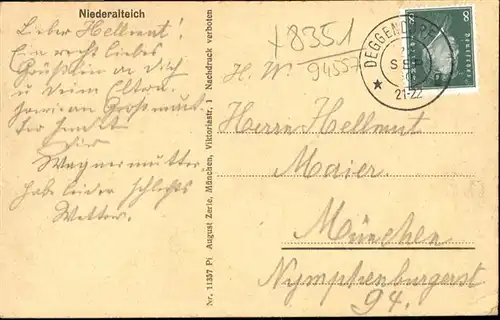 Niederalteich
Lieber Hellmut!
Ein recht liebes
Grüßlein an dich
u deine Eltern
Großmut-
ter
die
Wagnermutter.
habe leider schlechts
Wetter.
Nr. 11357 Pi August Zerle, München, Viktoriastr. 1 Nachdruck verboten
+8351
H. W. 94557
DEGGENDORF
SEP
21-22
8 8
Deutsches
Herrn Hellmut
Maier
München
Nymphenburgerst
94.